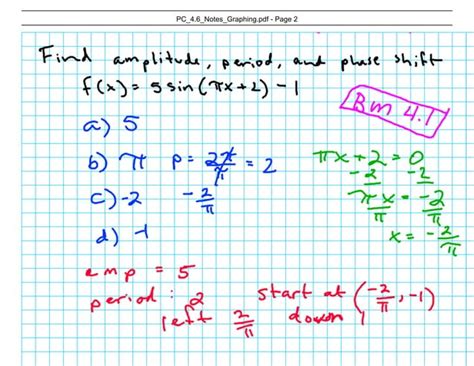 PC_4.6_Notes_Graphing.pdf - Page 2
Find amplitude, period, and phase shift
f(x) = 5 sin(πx + 2) - 1
Bm 4.1
a) 5
b) π p = 2π/π = 2
c) -2 -2/π
d) -1
πx + 2 = 0
-2 -2
πx = -2
π π
x = -2/π
amp = 5
period: 2
left 2/π
start at (-2/π, -1)
down 1